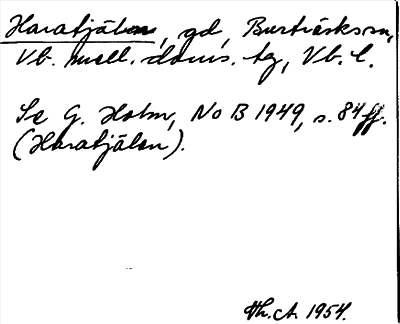 Harafjälen, gd, Burträsks sn,
Vb. mell. doms. tg, Vb. l.
Se G. Holm, No B 1949, s. 84 ff.
(Harafjälen).
Th. A. 1954.